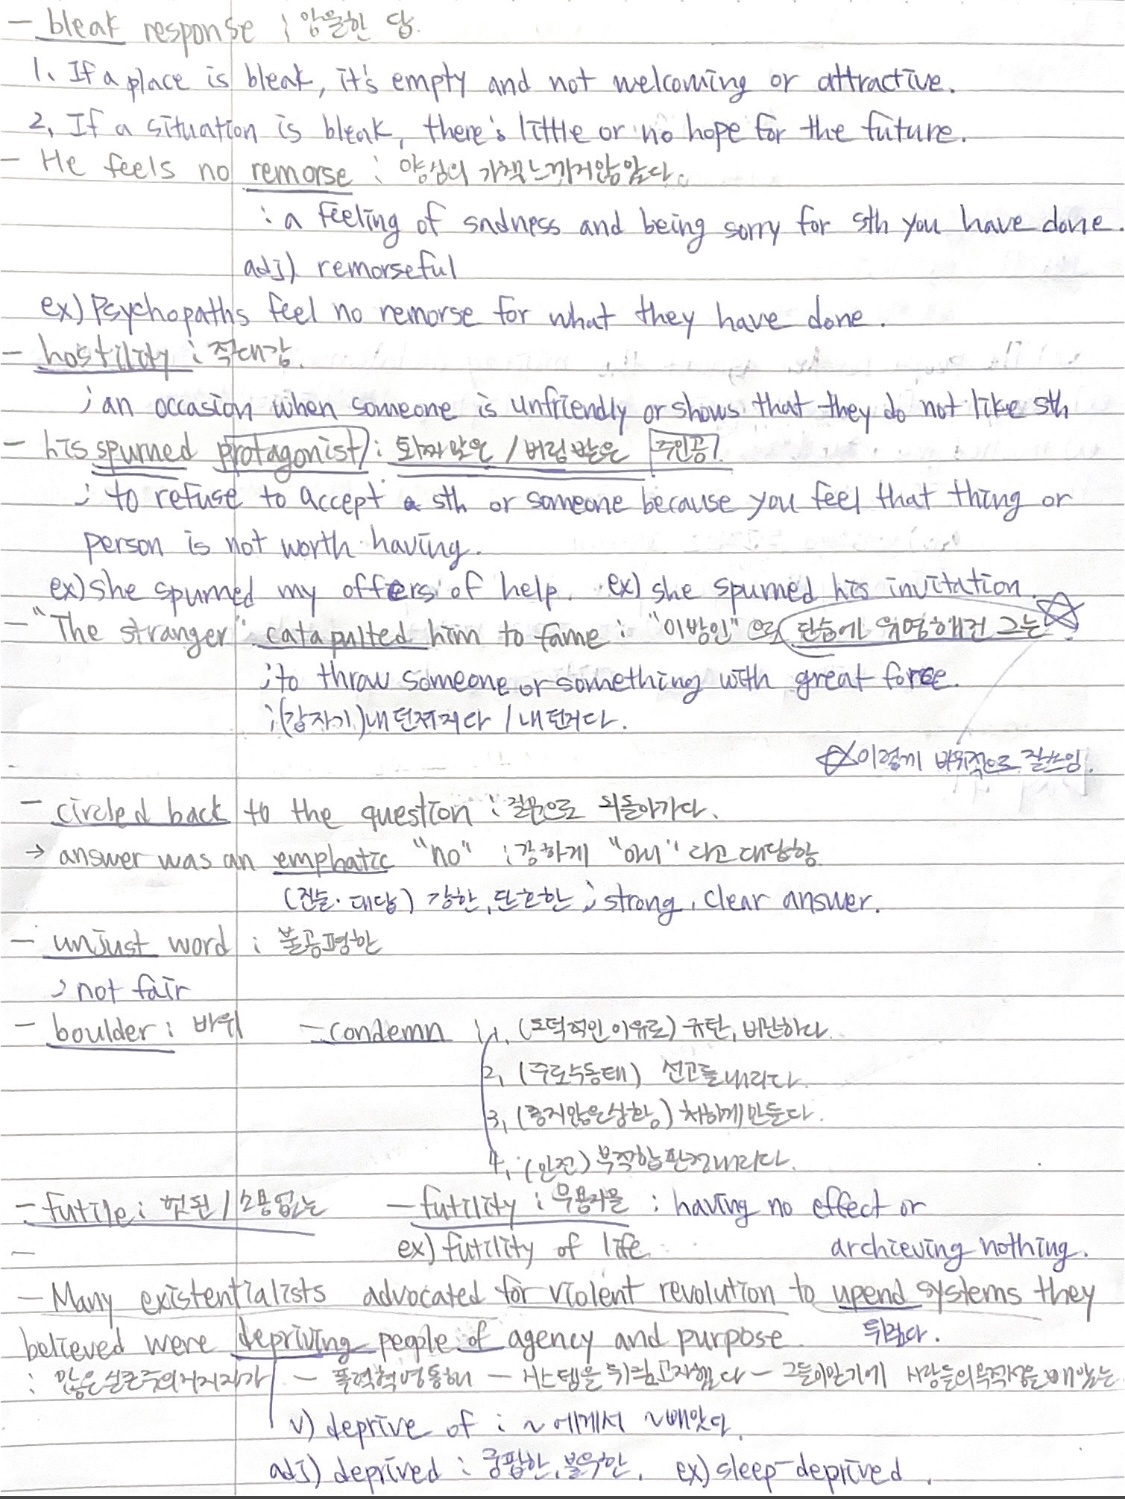 - bleak response ; 암울한 답.
1. If a place is bleak, it's empty and not welcoming or attractive.
2. If a situation is bleak, there's little or no hope for the future.
- He feels no remorse : 양심의 가책 느끼지않았다.
: a feeling of sadness and being sorry for sth you have done.
adj) remorseful
ex) Psychopaths feel no remorse for what they have done.
- hostility : 적대감.
; an occasion when someone is unfriendly or shows that they do not like sth
- his spurned protagonist : 퇴짜맞은 / 버림받은 주인공
; to refuse to accept a sth or someone because you feel that thing or
person is not worth having.
ex) she spurned my offers of help. ex) she spurned his invitation.
- "The stranger" catapulted him to fame : "이방인"으로 단숨에 유명해건 그는
; to throw someone or something with great force.
; (갑자기) 내던져지다 / 내던지다.
☆이렇게 비유적으로 잘쓰임.
- circled back to the question : 질문으로 되돌아가다.
→ answer was an emphatic "no" ; 강하게 "아니"라고 대답함
(진술·대답) 강한, 단호한 ; strong, clear answer.
- unjust word : 불공평한
; not fair
- boulder : 바위 - condemn 1, (도덕적인 이유로) 규탄, 비난하다.
2, (주로수동태) 선고를 내리다.
3, (좋지않은상황) 처하게 만든다.
4, (안전) 부적합 판정내리다.
- futile : 헛된 / 소용없는 - futility : 무용지물 : having no effect or
- ex) futility of life archieving nothing.
- Many existentialists advocated for violent revolution to upend systems they
believed were depriving people of agency and purpose. 뒤집다.
: 많은 실존주의 - 폭력혁명통해 - 시스템을 뒤집고자했다 - 그들이믿기에 사람들의
v) deprive of : ~에게서 ~빼앗다.
adj) deprived : 궁핍한, 불우한, ex) sleep-deprived.